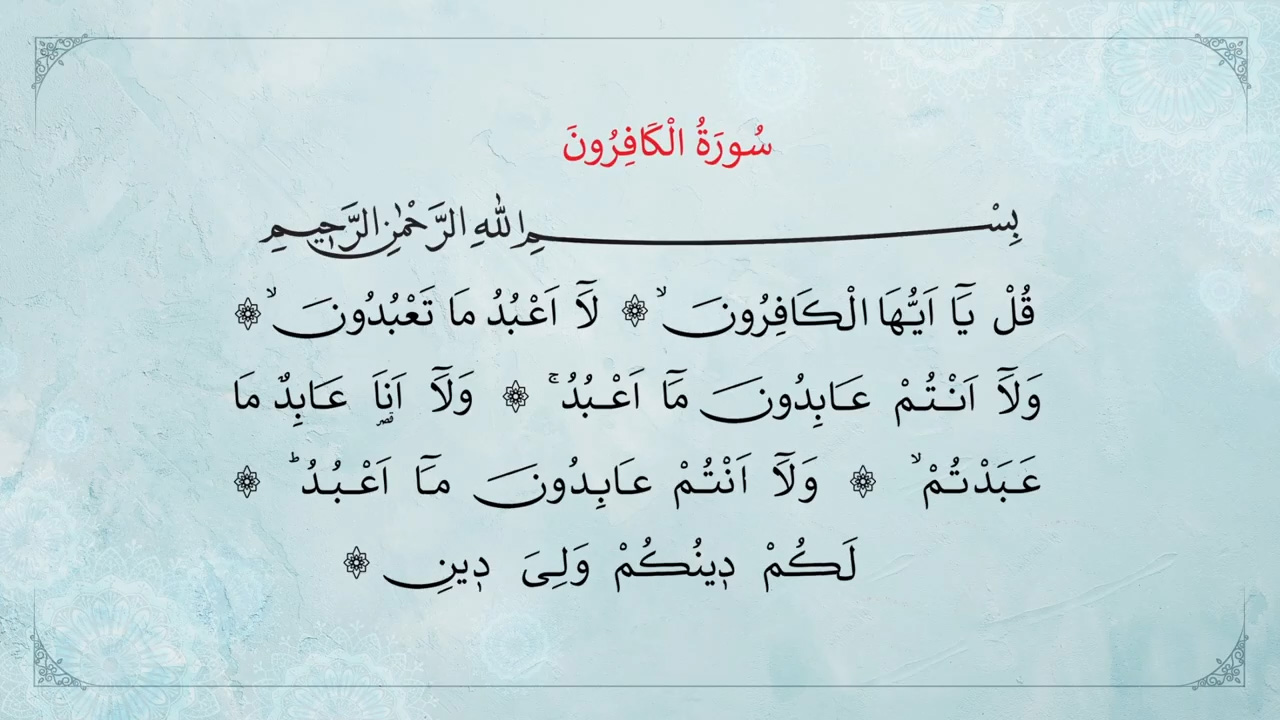 سُورَةُ الْكَافِرُونَ
بِسْمِ اللهِ الرَّحْمٰنِ الرَّحِيمِ
قُلْ يَٓا اَيُّهَا الْكَافِرُونَۙ ۞ لَٓا اَعْبُدُ مَا تَعْبُدُونَۙ ۞
وَلَٓا اَنْتُمْ عَابِدُونَ مَٓا اَعْبُدُۚ ۞ وَلَٓا اَنَا۬ عَابِدٌ مَا
عَبَدْتُمْۙ ۞ وَلَٓا اَنْتُمْ عَابِدُونَ مَٓا اَعْبُدُؕ ۞
لَكُمْ دٖينُكُمْ وَلِىَ دٖينِ ۞